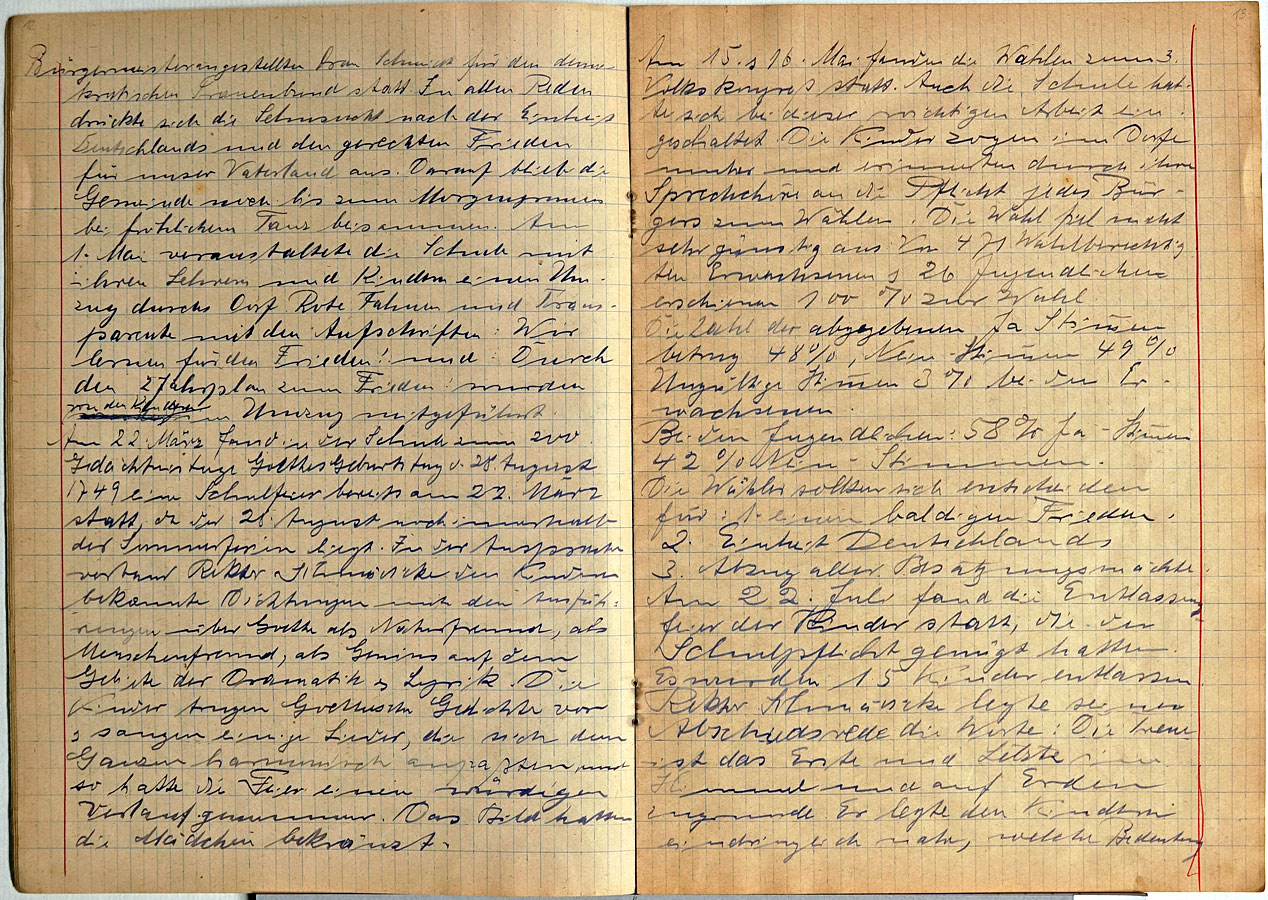 12
Bürgermeisterangestellten Frau Schmidt für den demo-
kratischen Frauenbund statt. In allen Reden
drückte sich die Sehnsucht nach der Einheit
Deutschlands und den gerechten Frieden
für unser Vaterland aus. Darauf blieb die
Gemeinde noch bis zum Morgengrauen
bei fröhlichem Tanz beisammen. Am
1. Mai veranstaltete die Schule mit
ihren Lehrern und Kindern einen Um-
zug durchs Dorf. Rote Fahnen und Trans-
parente mit den Aufschriften: Wir
lernen für den Frieden! und: Durch
den 2 Jahrplan zum Frieden! wurden
von den Kindern im Umzug mitgeführt.
Am 22. März fand in der Schule zum 200.
Gedächtnistage Goethes Geburtstag v. 28. August
1749 eine Schulfeier bereits am 22. März
statt, da der 28. August noch innerhalb
der Sommerferien liegt. In der Ansprache
verband Rektor Klimascke den Kindern
bekannte Dichtungen mit den Ausfüh-
rungen über Goethe als Naturfreund, als
Menschenfreund, als Genius auf dem
Gebiete der Dramatik u. Lyrik. Die
Kinder trugen Goethesche Gedichte vor
u. sangen einige Lieder, die sich dem
Ganzen harmonisch anpaßten und
so hatte die Feier einen würdigen
Verlauf genommen. Das Bild hatten
die Mädchen bekränzt.
13
Am 15. u. 16. Mai fanden die Wahlen zum 3.
Volkskongreß statt. Auch die Schule hat-
te sich bei dieser wichtigen Arbeit ein-
geschaltet. Die Kinder zogen im Dorfe
umher und erinnerten durch ihre
Sprechchöre an die Pflicht jedes Bür-
gers zum Wählen. Die Wahl fiel nicht
sehr günstig aus. Von 471 Wahlberechtig-
ten Erwachsenen u. 26 Jugendlichen
erschienen 100 % zur Wahl.
Die Zahl der abgegebenen Ja Stimmen
betrug 48 %, Nein-Stimmen 49 %
Ungültige Stimmen 3 % bei den Er-
wachsenen.
Bei den Jugendlichen: 58 % Ja-Stimmen
42 % Nein-Stimmen.
Die Wähler sollten sich entscheiden
für: 1. einen baldigen Frieden.
2. Einheit Deutschlands
3. Abzug aller Besatzungsmächte.
Am 22. Juli fand die Entlassungs-
feier der Kinder statt, die der
Schulpflicht genügt hatten.
Es wurden 15 Kinder entlassen.
Rektor Klimascke legte seiner
Abschiedsrede die Worte: Die Treue
ist das Erste und Letzte im
Himmel und auf Erden
zugrunde. Er legte den Kindern
eindringlich nahe, welche Bedeutung